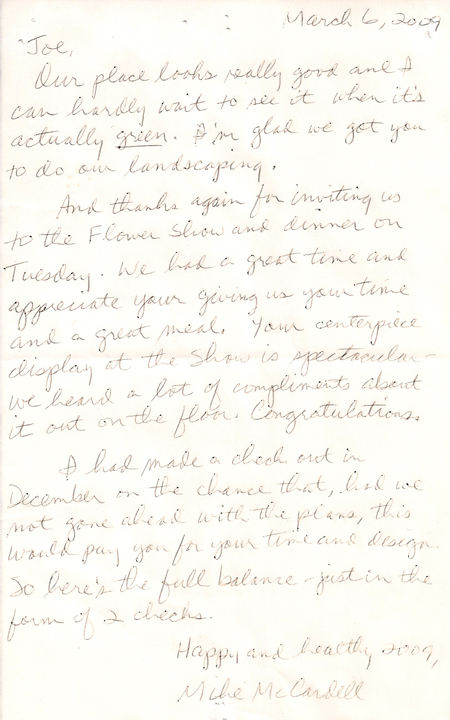 March 6, 2009
Joe,
Our place looks really good and I
can hardly wait to see it when it's
actually green. I'm glad we got you
to do our landscaping.
And thanks again for inviting us
to the Flower Show and dinner on
Tuesday. We had a great time and
appreciate your giving us your time
and a great meal. Your centerpiece
display at the Show is spectacular -
we heard a lot of compliments about
it out on the floor. Congratulations.
I had made a check out in
December on the chance that, had we
not gone ahead with the plans, this
would pay you for your time and design.
So here's the full balance - just in the
form of 2 checks.
Happy and healthy 2009,
Mike McCardell